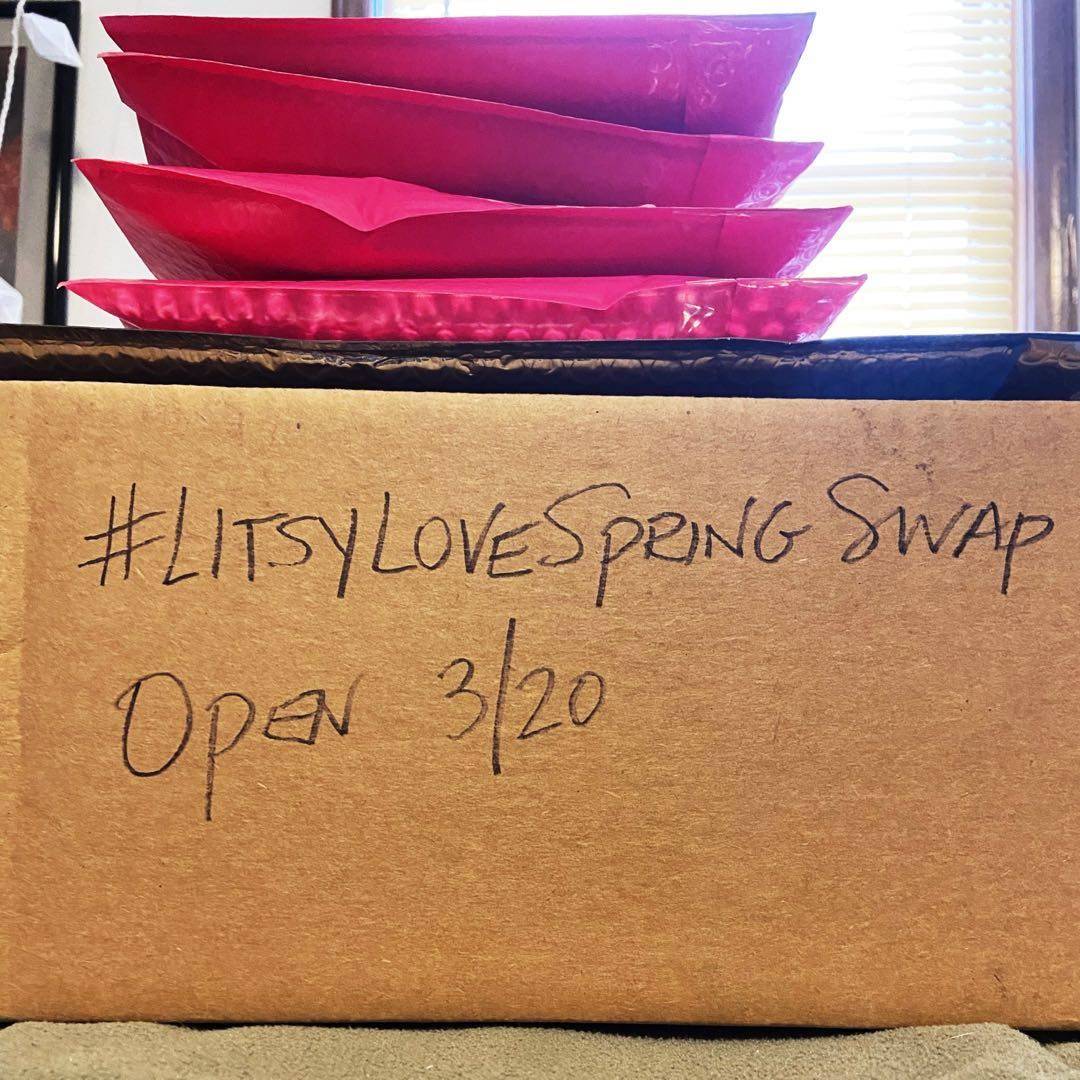 #LITSYLOVESPRING SWAP
OPEN 3/20